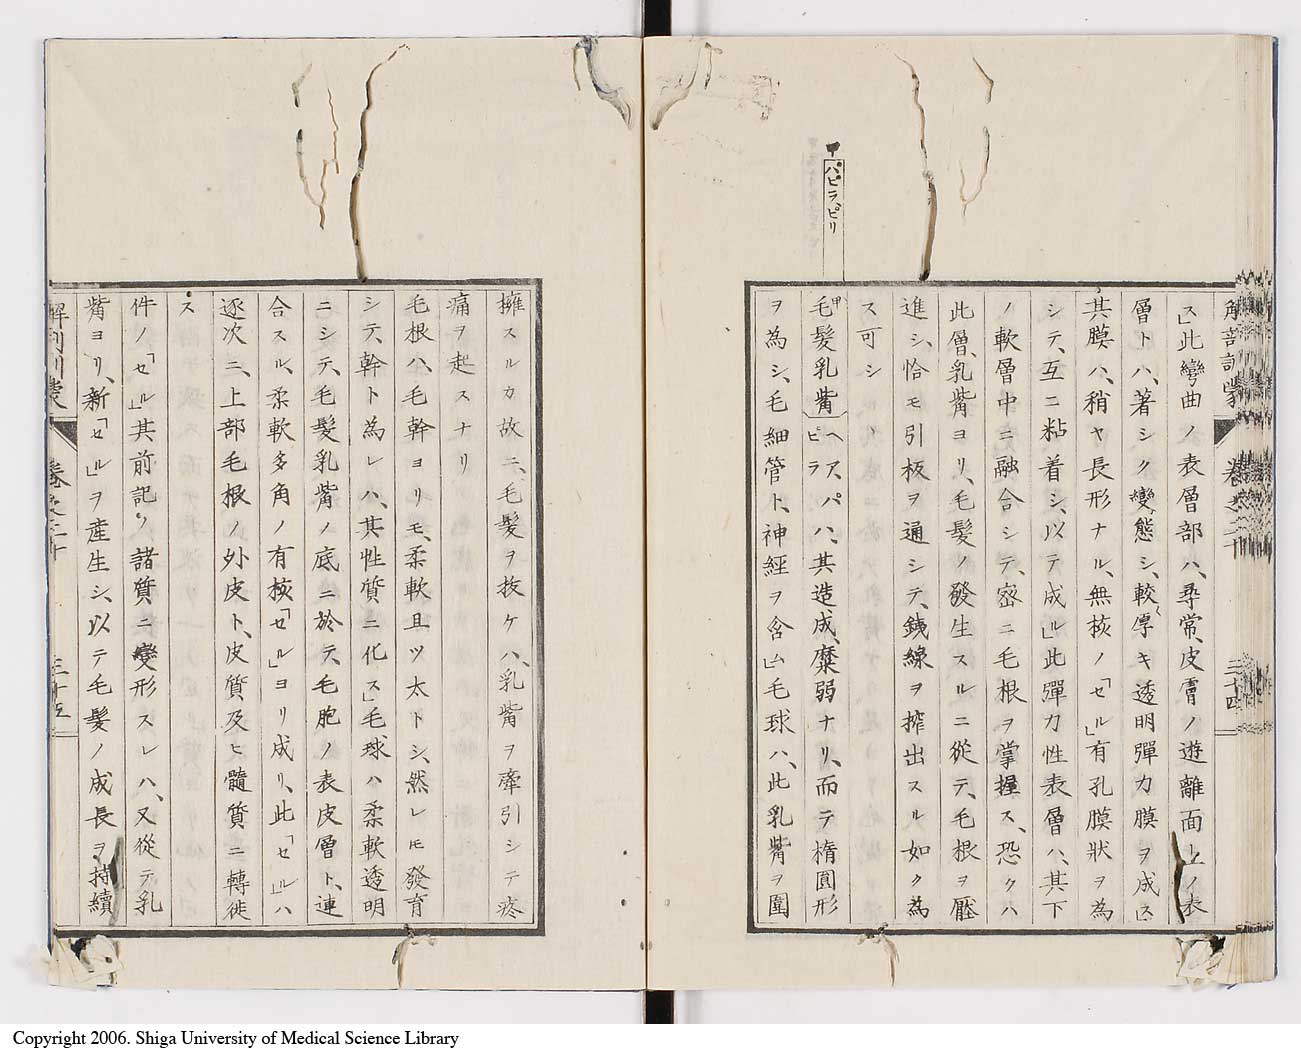 甲
パピラ、ピリ
ス」此彎曲ノ表層部ハ、尋常、皮膚ノ遊離面上ノ表
層トハ、著シク變態シ、較厚キ透明彈力膜ヲ成ス」
其膜ハ、稍ヤ長形ナル、無核ノ「セル」有孔膜狀ヲ為
シテ、互ニ粘着シ、以テ成ル」此彈力性表層ハ、其下
ノ軟層中ニ融合シテ、密ニ毛根ヲ掌握ス、恐クハ
此層、乳觜ヨリ、毛髮ノ發生スルニ從テ、毛根ヲ壓
進シ、恰モ引板ヲ通シテ、銕線ヲ搾出スル如ク為
ス可シ
甲毛髮乳觜ヘアパピラハ、其造成、糜弱ナリ、而テ楕圓形
ヲ為シ、毛細管ト、神經ヲ含ム」毛球ハ、此乳觜ヲ圍
擁スルカ故ニ、毛髮ヲ拔ケハ、乳觜ヲ牽引シテ疼
痛ヲ起スナリ
毛根ハ、毛幹ヨリモ、柔軟且ツ太トシ、然レモ發育
シテ、幹ト為レハ、其性質ニ化ス」毛球ハ柔軟透明
ニシテ、毛髮乳觜ノ底ニ於テ、毛胞ノ表皮層ト、連
合スル、柔軟多角ノ有核「セル」ヨリ成リ、此「セル」ハ
逐次ニ、上部毛根ノ外皮ト、皮質及ヒ髓質ニ轉徙
ス
件ノ「セル」其前記ノ諸質ニ變形スレハ、又從テ乳
觜ヨリ、新「セル」ヲ産生シ、以テ毛髮ノ成長ヲ持續
Copyright 2006. Shiga University of Medical Science Library